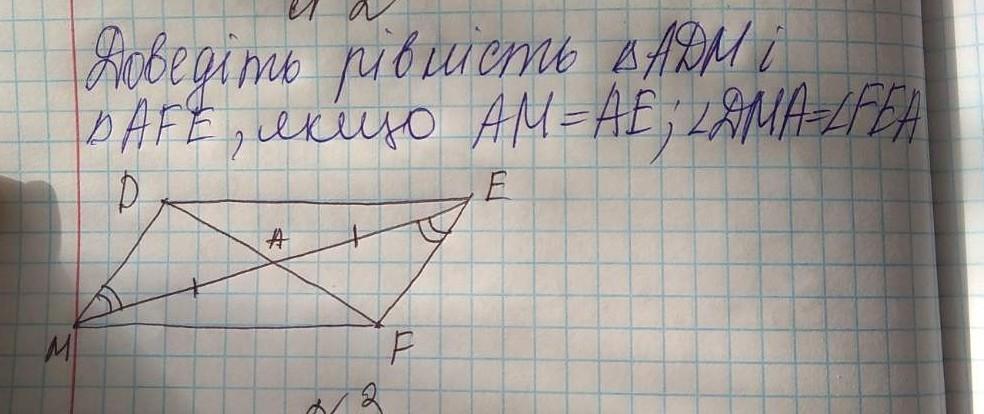 Доведіть рівність ΔADM і
ΔAFE, якщо AM=AE; ∠DMA=∠FEA
D
E
A
M
F